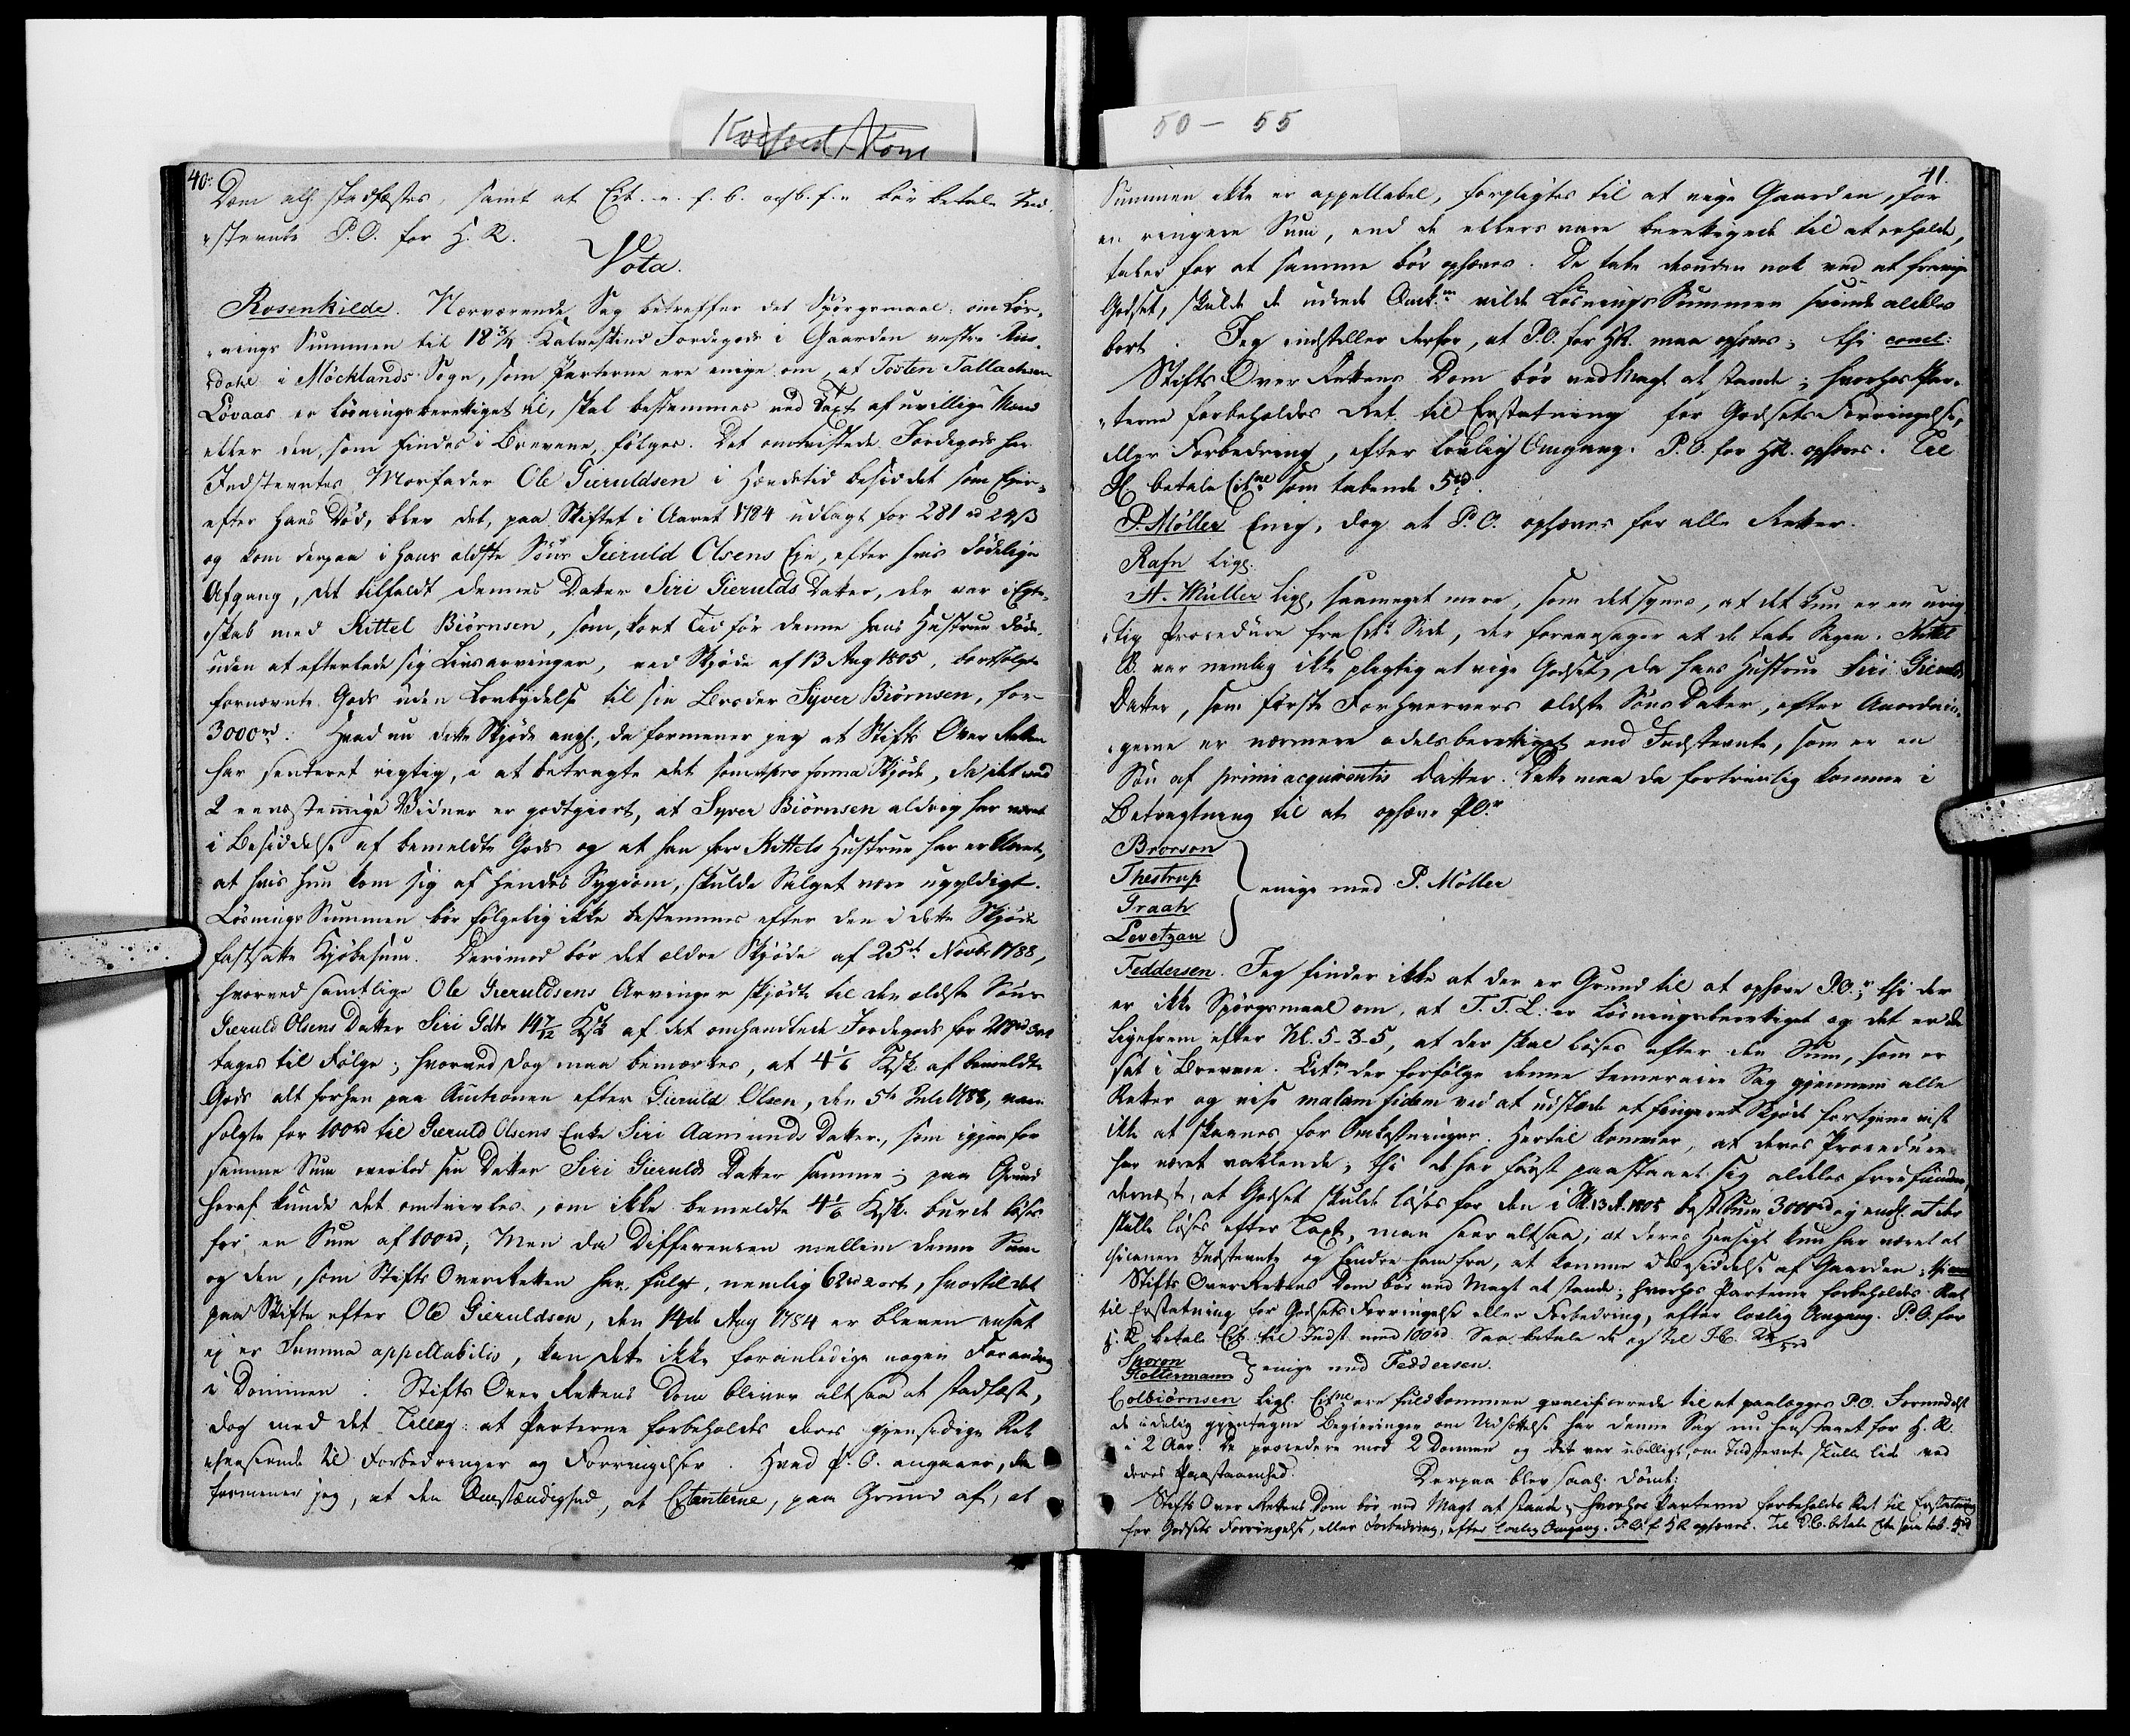 Kvisted / Kom
50 – 55
40.
Dom alf stadfæstes, samt at Cit. e. f. b. og b. f. e bør betale Ind-
stevnte P.O. for H. R.
Vota.
Rosenkilde. Nærværende Sag betreffer det Spørgsmaal: om Løs-
nings Summen til 18 3/4 Kalveskind Jordegods i Gaarden vestre
dahl i Möcklands Sogn, som Parterne ere enige om, at Tosten Tallachsen
Lövaas er løsningsberettiget til, skal bestemmes ved Taxt af uvillige Mænd
eller den, som findes i Brevene, følges. Det omtvistede Jordegods har
Indstevntes Morfader Ole Gieruldsen i Hændetid besiddet som Ejer,
efter hans Død, blev det, paa Skiftet i Aaret 1784 udlagt for 281 rd 24 ß
og kom derpaa i hans ældste Søns Gieruld Olsens Eje, efter hvis dødelige
Afgang, det tilfaldt dennes Datter Siri Gierulds Datter, der var i Egte-
skab med Kittel Biörnsen, som, kort Tid før denne hans Hustrue døde,
uden at efterlade sig Livsarvinger, ved Skjøde af 13 Aug 1805, bortsolgte
fornævnte Gods uden Lovbydelse til sin Broder Syver Biörnsen, for
3000 rd. Hvad nu dette Skjøde angl., da formener jeg at Stifts Over Retten
har senteret rigtig, i at betragte det som et pro forma Skjøde, da det ved
2 eenstemmige Vidner er godtgiort, at Syver Biörnsen aldrig har været
i Besiddelse af bemeldte Gods og at han for Kittels Hustrue har erklæret,
at hvis hun kom sig af hendes Sygdom, skulde Salget være ugyldigt.
Løsnings Summen bør følgelig ikke bestemmes efter den i dette Skjøde
fastsatte Kjøbesum. Derimod bør det ældre Skjøde af 25de Novbr 1788,
hvorved samtlige Ole Gieruldsens Arvinger skjødte til den ældste Søns
Gieruld Olsens Datter Siri Gdtr 14 7/12 Ksk af det omhandlede Jordegods for
tages til Følge; hvorved dog maa bemærkes, at 4 1/6 Ksk af bemeldte
Gods alt forhen paa Auctionen efter Gieruld Olsen, den 5te Juli 1788, var
solgte for 100 rd til Gieruld Olsens Enke Siri Aamunds Datter, som igjen for
samme Sum overlod sin Datter Siri Gierulds Datter samme; paa Grund
heraf kunde det omtvivles, om ikke bemeldte 4 1/6 Ksk. burde løses
for en Sum af 100 rd; Men da Differensen mellem denne Sum
og den, som Stifts OverRetten har fulgt, nemlig 62 rd 2 ort, hvortil det
paa Skifte efter Ole Gieruldsen, den 14de Aug 1784 er bleven ansat
ej er Summa appellabilis, kan dette ikke foranledige nogen Forandring
i Dommen. Stifts Over Rettens Dom bliver altsaa at stadfæste,
dog med det Tillæg: at Parterne forbeholdes deres gjensidige Ret
henseende til Forbedringer og Forringelser. Hvad P. O. angaaer, da
formener jeg, at den Omstændighed, at Citanterne, paa Grund af, at
41.
Summen ikke er appellabel, forpligtes til at vige Gaarden, for
en ringere Sum, end de ellers vare berettigede til at erholde,
taler for at samme bør ophæves. De tabe desuden nok ved at fravige
Godset, skulde de udrede Omk. vilde Løsnings Summen svinde aldeles
bort. Jeg indstiller derfor, at P.O. for HR. maa ophæves; thi concl:
Stifts Over Rettens Dom bør ved Magt at stande; hvorhos Par-
terne forbeholdes Ret til Erstatning for Godsets Forringelse,
eller Forbedring, efter lovlig Omgang. P.O. for HR. ophæves. Til
betale Citne som tabende 5 rd.
P. Møller Enig, dog at P.O. ophæves for alle Retter.
Rafn Ligl.
A. Müller Ligl, saameget mere, som det synes, at det kun er en urig-
tig Procedure fra Cits Side, der foraarsager at de tabe Sagen. Kittel
B. var nemlig ikke pligtig at vige Godset, da hans Hustrue Siri Gierulds
Datter, som første Forhververs ældste Søns Datter, efter Anordnin-
gerne er nærmere odelsberettiget end Indstevnte, som er en
Søn af primi acquirentis Datter. Dette maa da fortrinlig komme i
Betragtning til at ophæve P.O.
Brorson
Thestrup
enige med P. Møller
Graah
Levetzau
Feddersen. Jeg finder ikke at der er Grund til at ophæve P.O.; thi der
er ikke Spørgsmaal om, at T. T. L: er løsningsberettiget og det er
ligefrem efter Nl. 5-3-5, at der skal løses efter den Sum, som er
sat i Brevene. Citne der forfølge denne temeraire Sag gjennem alle
Retter og vise malam fidem ved at udstede et fingeret Skjøde fortjene vist
ikke at skaanes for Omkostninger. Hertil kommer, at deres Procedure
har været vaklende, thi de har først paastaaet sig aldeles frie fundne,
dernæst, at Godset skulde løses for den i Sk. 13 A. 1805 bestte Sum 3000 rd og endl. at det
skulle løses efter Taxt, man seer altsaa, at deres Hensigt kun har været at
chicanere Indstevnte og hindre ham fra, at komme i Besiddelse af Gaarden; thi concl.
Stifts OverRettens Dom bør ved Magt at stande; hvorhos Parterne forbeholdes Ret
til Erstatning for Godsets Forringelse eller Forbedring, efter lovlig Omgang. P.O. for
H. R. betale Cit. til Indst med 100 rd. Saa betale de og til J.C. 5 rd
Sporon
Haltermann enige med Feddersen.
Colbiørnsen Ligl. Citne ere fuldkommen qvalificerede til at paalægges P.O. Formedelst
de idelig gjentagne Begieringer om Udsættelse har denne Sag nu henstaaet for H. R.
i 2 Aar. De procedere mod 2 Domme og det var ubilligt, om Indstevnte skulle lide ved
deres Paastaaenhed. Derpaa blev saal. dømt:
Stifts Over Rettens Dom bør ved Magt at stande, hvorhos Parterne forbeholdes Ret til Erstatning
for Godsets Forringelse, eller Forbedring, efter lovlig Omgang. P.O. f. HR ophæves. Til J.C. betale Citne som tab. 5 rd